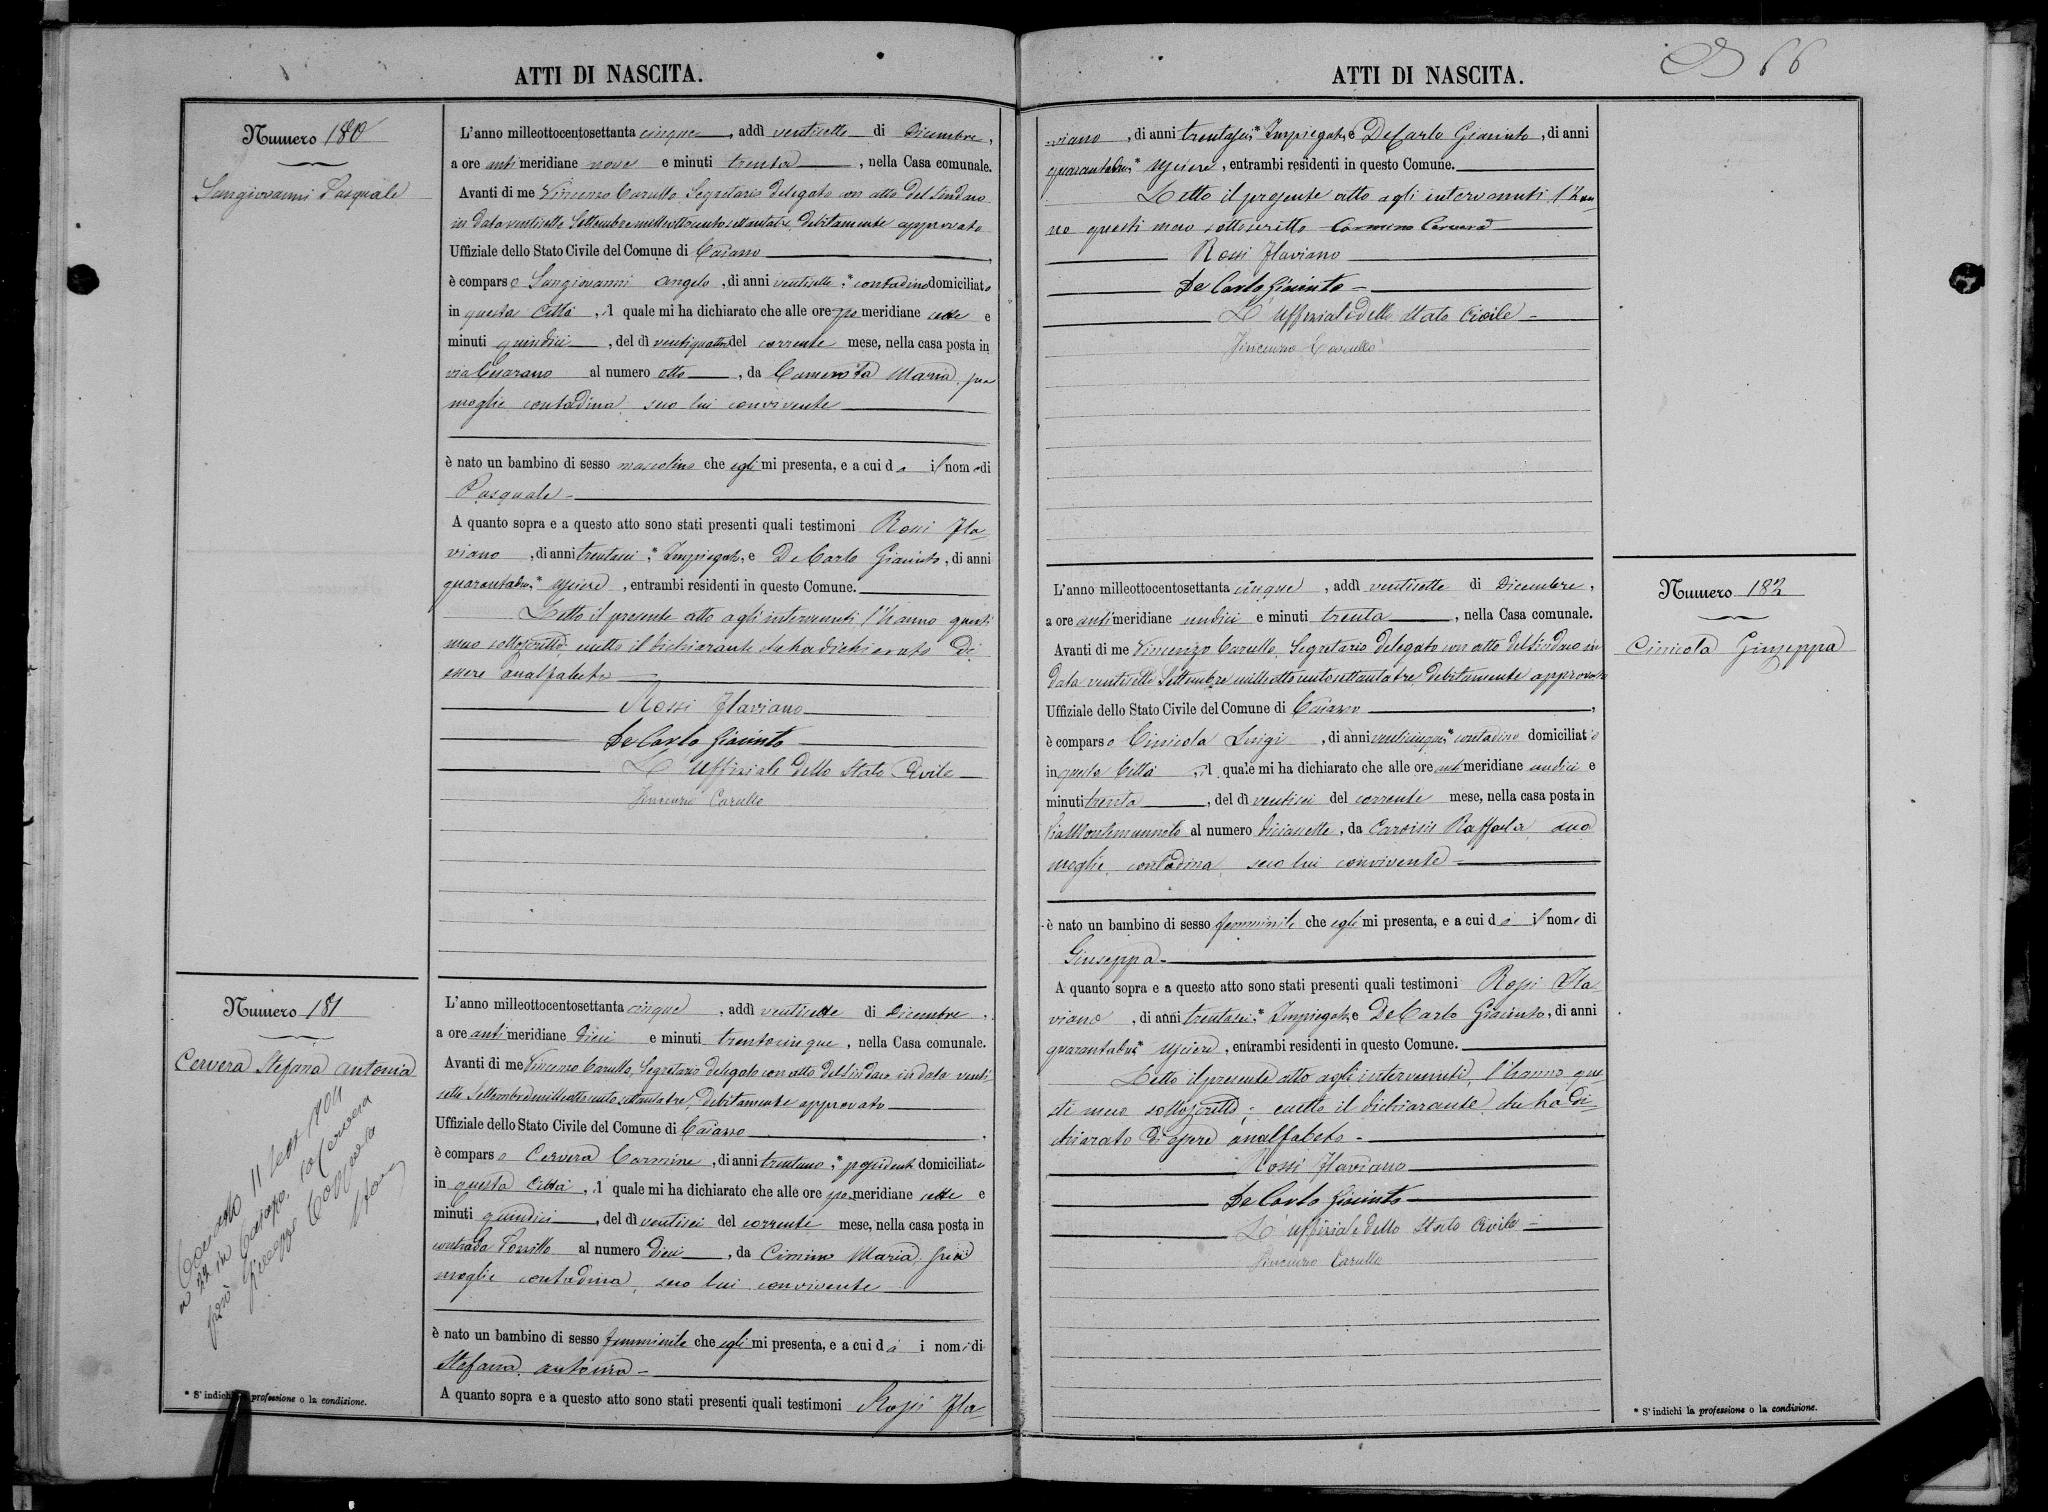 ATTI DI NASCITA.
Numero 180
Sangiovanni Pasquale
L'anno milleottocentosettanta cinque, addì ventisette di Dicembre,
a ore antimeridiane nove e minuti trenta, nella Casa comunale.
Avanti di me Vincenzo Carullo, Segretario delegato con atto del Sindaco
in data ventisette Settembre milleottocentosettantatre, debitamente approvato
Uffiziale dello Stato Civile del Comune di Caiazzo,
è comparso Sangiovanni Angelo, di anni ventisette,* contadino domiciliato
in questa Città, il quale mi ha dichiarato che alle ore pomeridiane sette e
minuti quindici, del dì ventiquattro del corrente mese, nella casa posta in
via Cesarano al numero otto, da Camerota Maria, sua
moglie contadina, seco lui convivente
è nato un bambino di sesso mascolino che egli mi presenta, e a cui dà il nome di
Pasquale
A quanto sopra e a questo atto sono stati presenti quali testimoni Rossi Fla-
viano, di anni trentasei,* Impiegato, e De Carlo Giacinto, di anni
quarantatre,* Usciere, entrambi residenti in questo Comune.
Letto il presente atto agli intervenuti, l'hanno questi
meco sottoscritto, eccetto il dichiarante che ha dichiarato di
essere analfabeto
Rossi Flaviano
De Carlo Giacinto
L'Uffiziale dello Stato Civile
Vincenzo Carullo
Numero 181
Cervera Stefana Antonia
L'anno milleottocentosettanta cinque, addì ventisette di Dicembre,
a ore antimeridiane dieci e minuti trentacinque, nella Casa comunale.
Avanti di me Vincenzo Carullo, Segretario delegato con atto del Sindaco in data venti-
sette Settembre milleottocentosettantatre, debitamente approvato
Uffiziale dello Stato Civile del Comune di Caiazzo,
è comparso Cervera Carmine, di anni trentuno,* possidente domiciliato
in questa Città, il quale mi ha dichiarato che alle ore pomeridiane sette e
minuti quindici, del dì ventisei del corrente mese, nella casa posta in
contrada al numero dieci, da Cimino Maria, sua
moglie contadina, seco lui convivente
è nato un bambino di sesso femminile che egli mi presenta, e a cui dà i nomi di
Stefana, Antonia
A quanto sopra e a questo atto sono stati presenti quali testimoni Rossi Fla-
* S'indichi la professione o la condizione.
66
ATTI DI NASCITA.
viano, di anni trentasei,* Impiegato, e De Carlo Giacinto, di anni
quarantatre,* Usciere, entrambi residenti in questo Comune.
Letto il presente atto agli intervenuti, l'han-
no questi meco sottoscritto Carmine Cervera
Rossi Flaviano
De Carlo Giacinto
L'Uffiziale dello Stato Civile
Vincenzo Carullo
Numero 182
Cinicola Giuseppa
L'anno milleottocentosettanta cinque, addì ventisette di Dicembre,
a ore antimeridiane undici e minuti trenta, nella Casa comunale.
Avanti di me Vincenzo Carullo, Segretario delegato con atto del Sindaco in
data ventisette Settembre milleottocentosettantatre, debitamente approvato
Uffiziale dello Stato Civile del Comune di Caiazzo,
è comparso Cinicola Luigi, di anni venticinque,* contadino domiciliato
in questa Città, il quale mi ha dichiarato che alle ore antimeridiane undici e
minuti trenta, del dì ventisei del corrente mese, nella casa posta in
Via al numero diciassette, da Raffaela, sua
moglie, contadina, seco lui convivente
è nato un bambino di sesso femminile che egli mi presenta, e a cui dà il nome di
Giuseppa
A quanto sopra e a questo atto sono stati presenti quali testimoni Rossi Fla-
viano, di anni trentasei,* Impiegato, e De Carlo Giacinto, di anni
quarantatre,* Usciere, entrambi residenti in questo Comune.
Letto il presente atto agli intervenuti, l'hanno que-
sti meco sottoscritto; eccetto il dichiarante, che ha di-
chiarato di essere analfabeto
Rossi Flaviano
De Carlo Giacinto
L'Uffiziale dello Stato Civile
Vincenzo Carullo
* S'indichi la professione o la condizione.